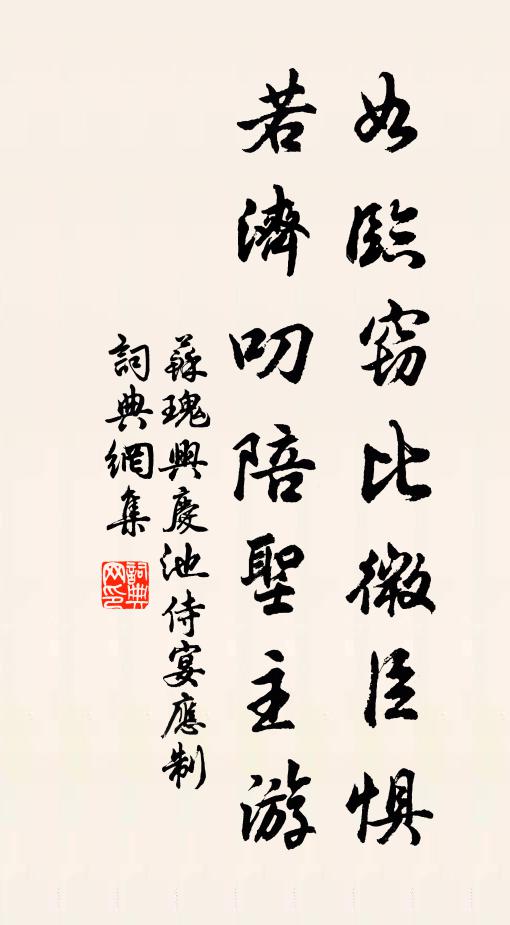 如臨窃比微臣懼
若濟叨陪聖主游
蘇瑰興慶池侍宴應制
詞典網集
詞典
网印